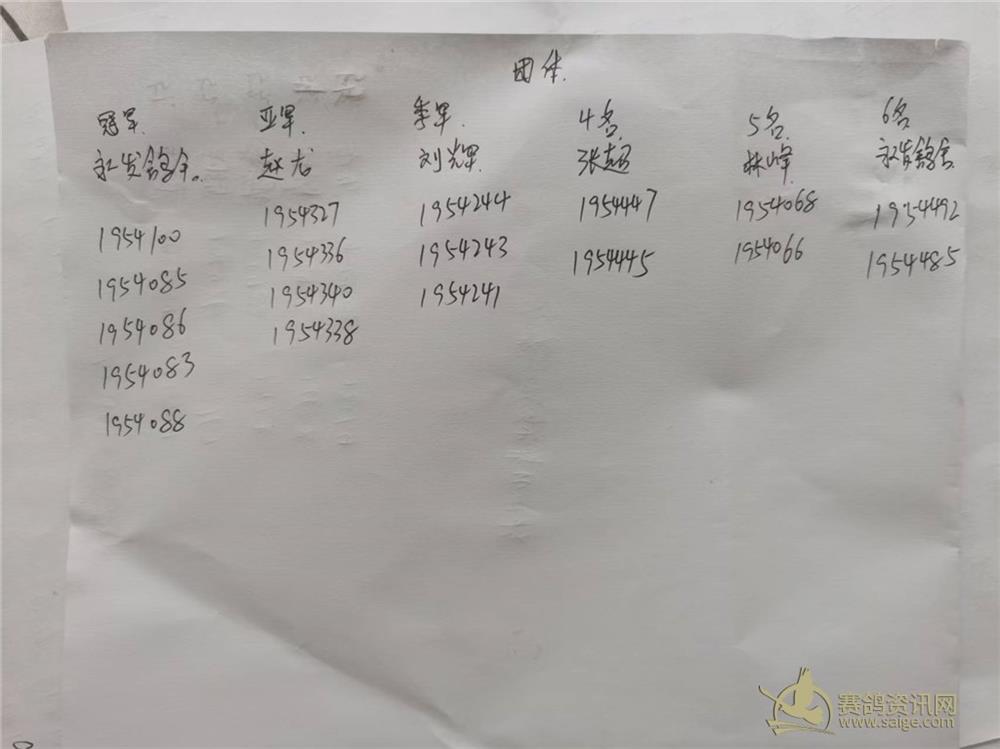 团体.
冠军. 亚军. 季军. 4名. 5名. 6名
永发鸽舍. 赵龙 刘辉 张超 林峰 永发鸽舍
1954100 1954327 1954244 1954447 1954068 1954492
1954085 1954336 1954243 1954445 1954066 1954485
1954086 1954340 1954241
1954083 1954338
1954088
赛鸽资讯网
www.saige.com